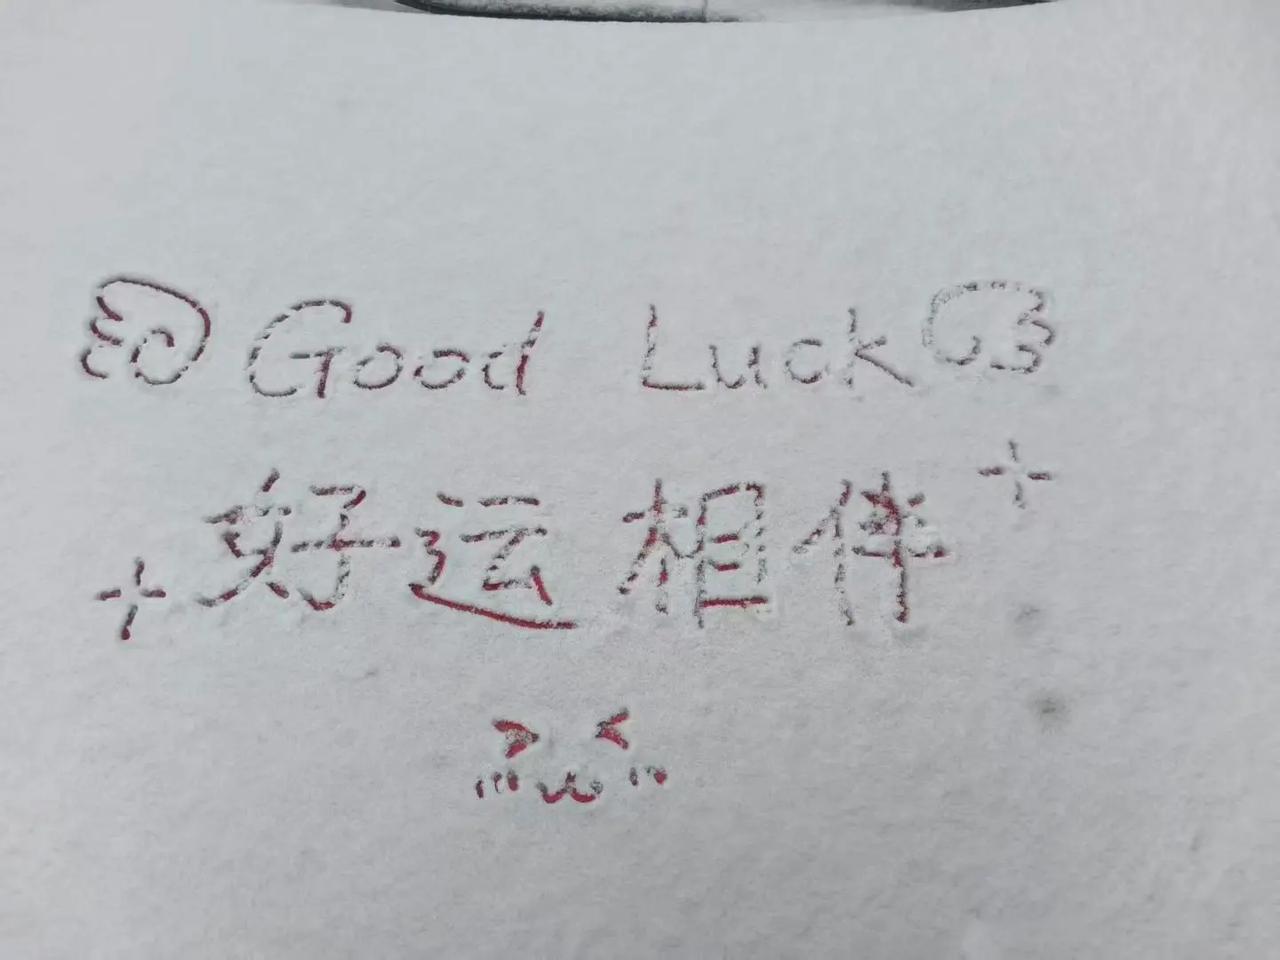 Good Luck
好运相伴